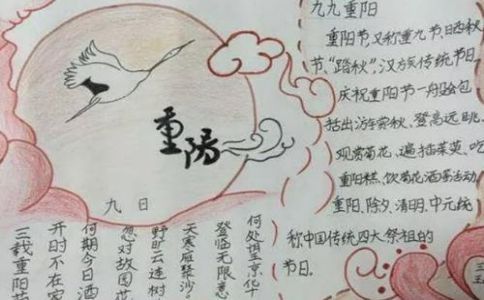 九九重阳
重阳节,又称重九节、晒秋
节、“踏秋”,汉族传统节日
庆祝重阳节一般会包
括出游赏秋、登高远眺、
观赏菊花、遍插茱萸、吃
重阳糕、饮菊花酒等活动
重阳、除夕、清明、中元统
称中国传统四大祭祖的
节日.
重陽
九日
三载重阳
开时不在家
何期今日酒
忽对故园
野旷云连树
天寒雁聚沙。
登临无限意
何处望京华